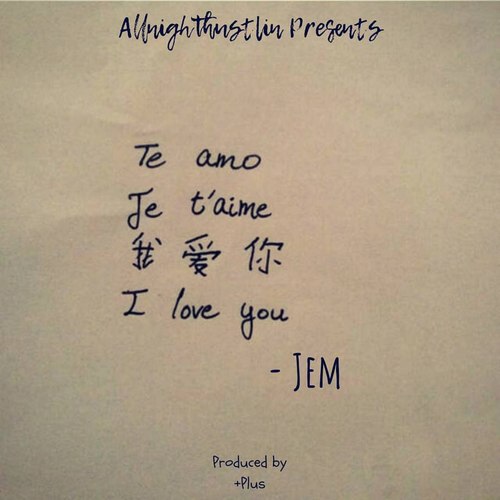 Allnighthustlin Presents
Te amo
Je t'aime
我爱你
I love you
- JEM
Produced by
+Plus